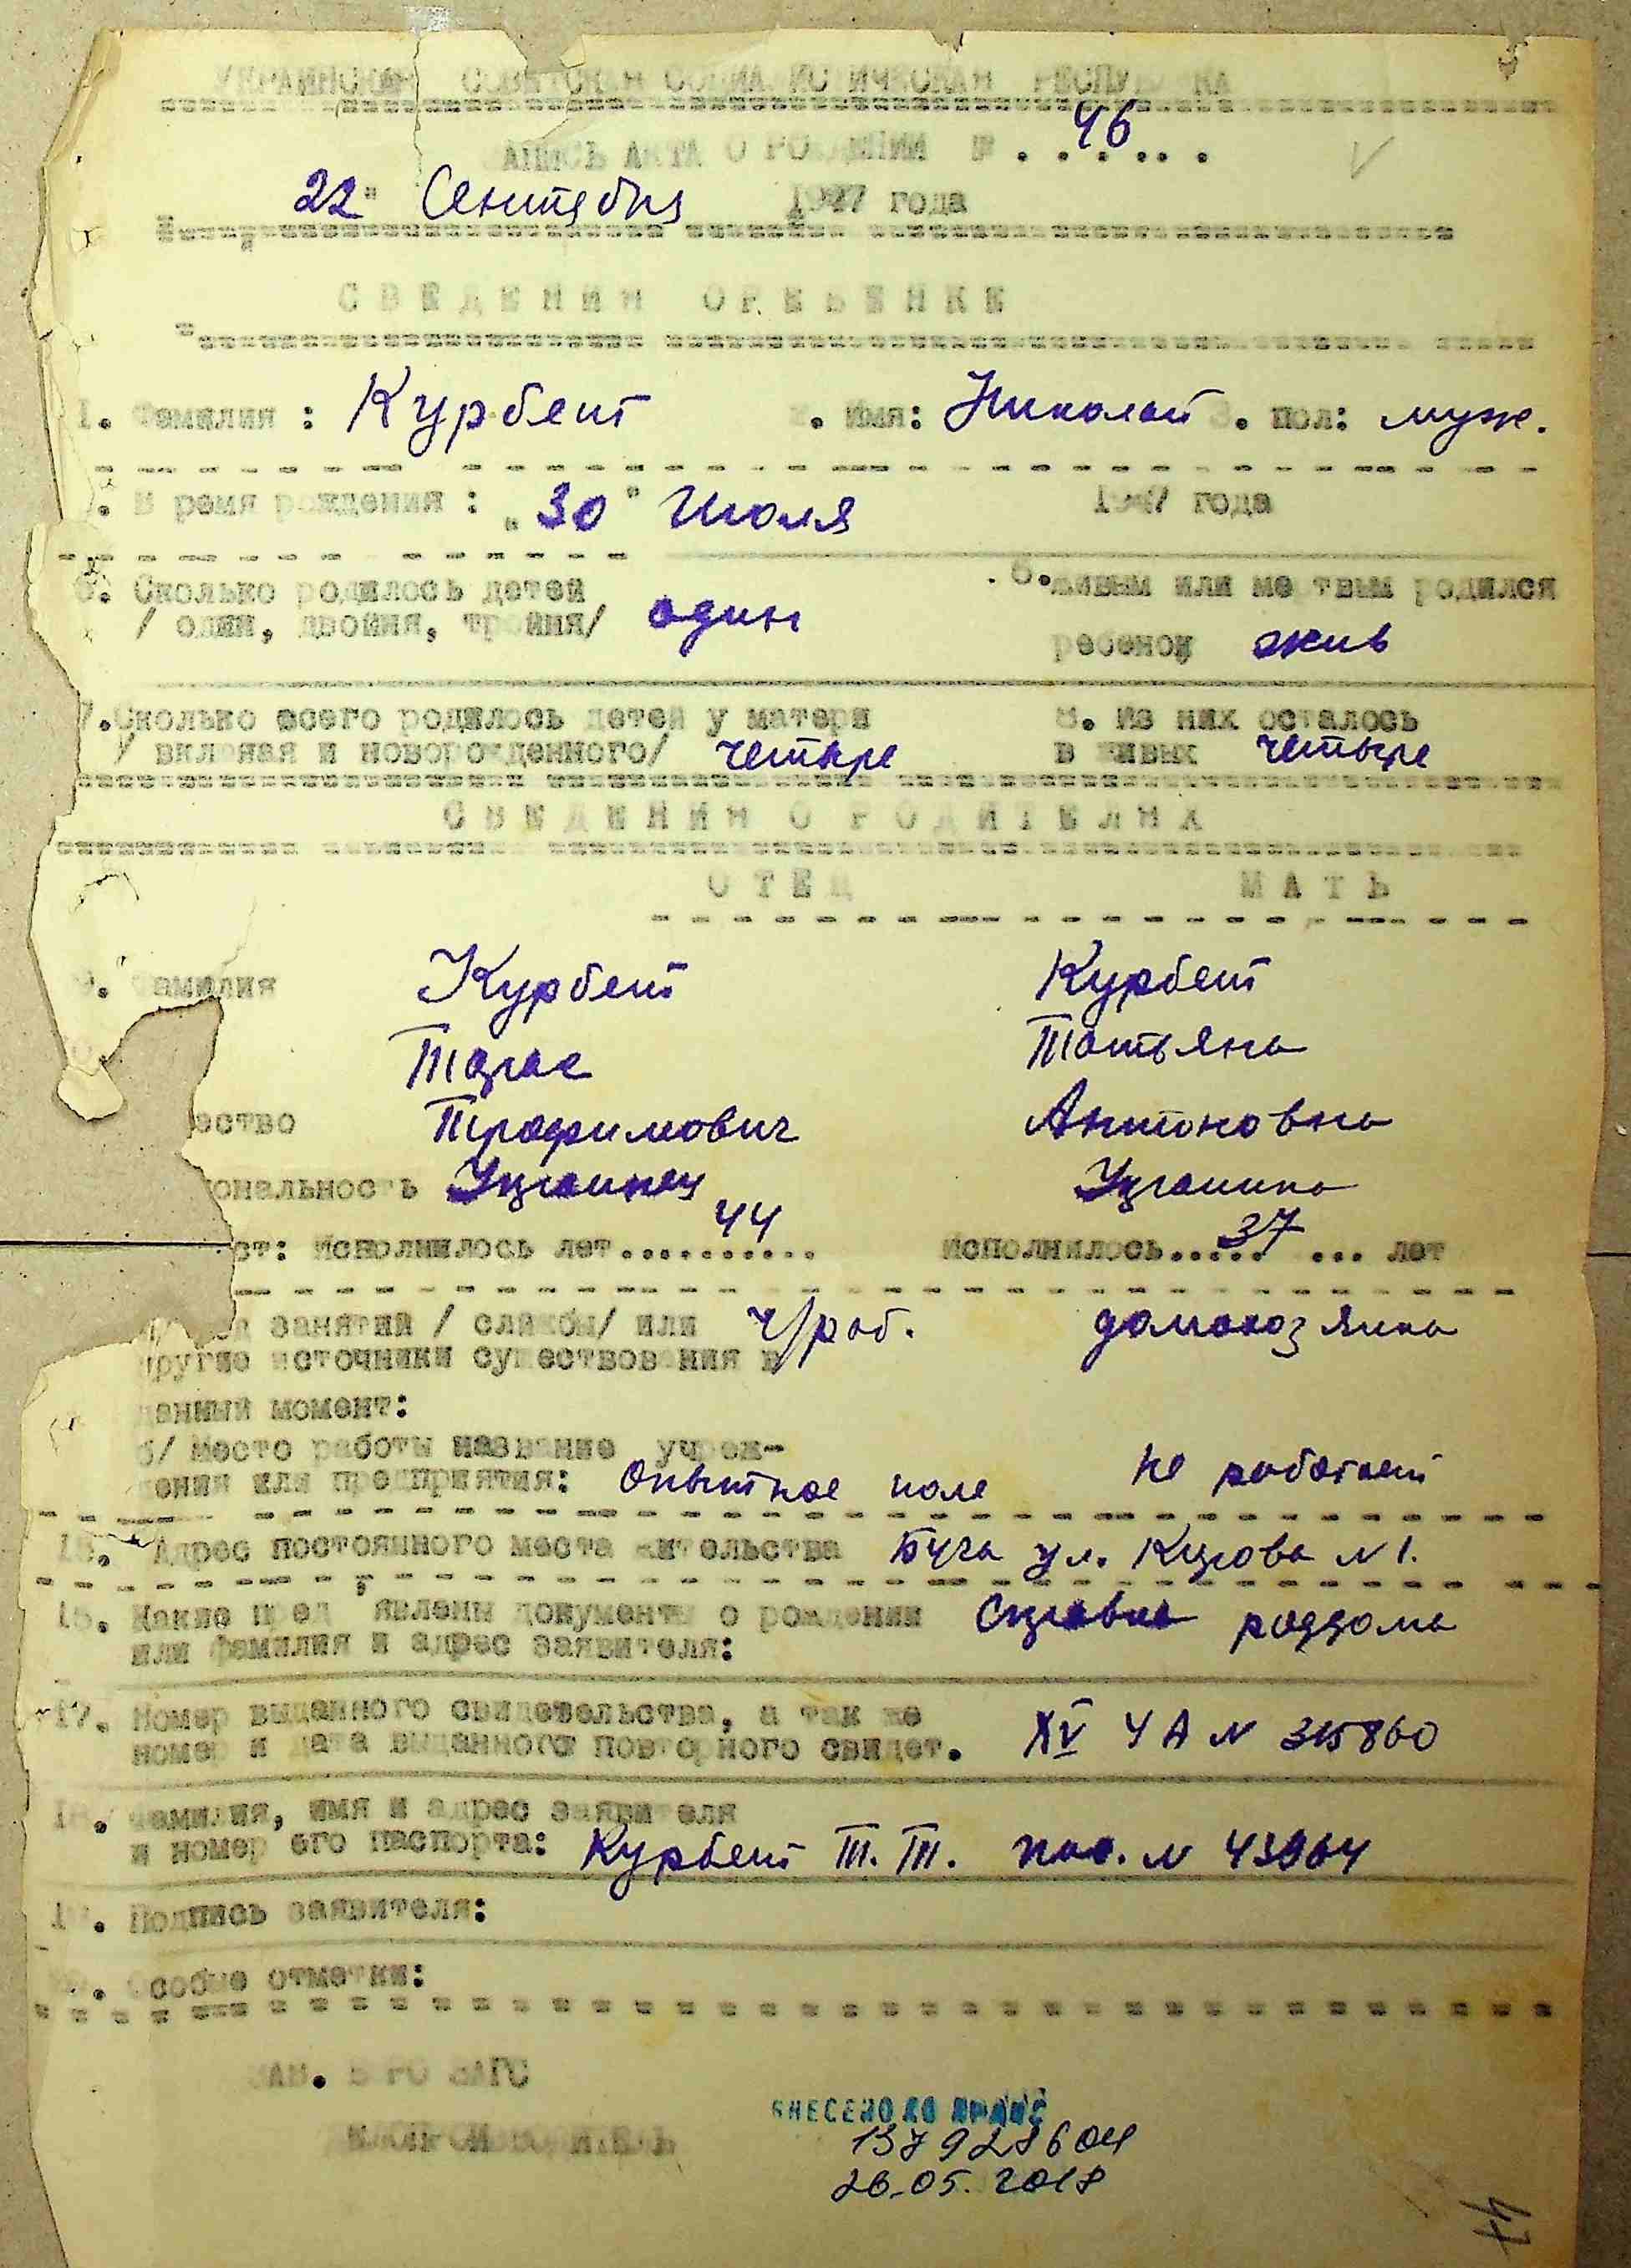 УКРАИНСКАЯ СОВЕТСКАЯ СОЦИАЛИСТИЧЕСКАЯ РЕСПУБЛИКА
ЗАПИСЬ АКТА О РОЖДЕНИИ № 46
22" Сентября 1947 года
СВЕДЕНИЯ О РЕБЕНКЕ
1. Фамилия: Курбет 2. Имя: Николай 3. пол: муж.
Время рождения: "30" Июля 1947 года
Сколько родилось детей
/ один, двойня, тройня/ один
6. живым или мертвым родился
ребенок жив
7. Сколько всего родилось детей у матери
/ включая и новорожденного/ четыре
8. Из них осталось
в живых четыре
СВЕДЕНИЯ О РОДИТЕЛЯХ
ОТЕЦ МАТЬ
9. Фамилия Курбет Курбет
Тарас Татьяна
ество Трофимович Антоновна
ональность Украинец Украинка
ст: исполнилось лет 44 исполнилось 37 лет
занятий / службы/ или ч/раб. домохозяйка
другие источники существования в
данный момент:
б/ Место работы название учреж-
дения или предприятия: Опытное поле не работает
Адрес постоянного места жительства Буча ул. Кирова № 1.
Какие пред'явлены документы о рождении Справка роддома
или фамилия и адрес заявителя:
17. Номер выданного свидетельства, а так же
номер и дата выданного повторного свидет. XV ЧА № 315860
18. Фамилия, имя и адрес заявителя
и номер его паспорта: Курбет Т. Т. пас. №
19. Подпись заявителя:
20. Особые отметки:
ЗАВ. БЮРО ЗАГС
ВНЕСЕНО ДО
26.05.2018
47